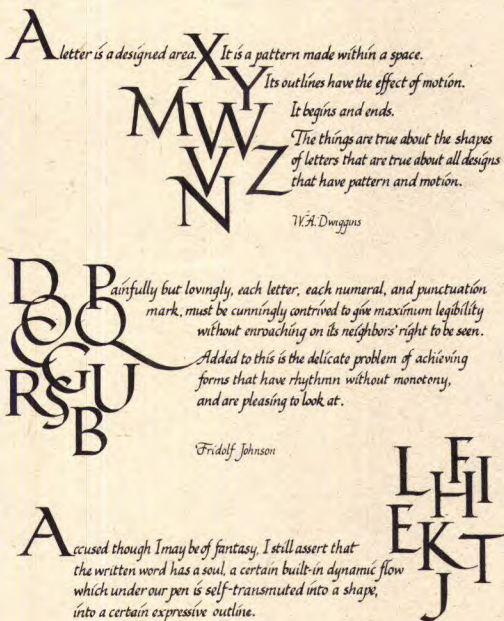 A letter is a designed area. X It is a pattern made within a space.
Y Its outlines have the effect of motion.
M W It begins and ends.
V Z The things are true about the shapes
N of letters that are true about all designs
that have pattern and motion.
W. A. Dwiggins
D O Painfully but lovingly, each letter, each numeral, and punctuation
C Q mark, must be cunningly contrived to give maximum legibility
without enroaching on its neighbors' right to be seen.
G Added to this is the delicate problem of achieving
R S U forms that have rhythmn without monotony,
B and are pleasing to look at.
Fridolf Johnson
L F H I
E K T
J
Accused though I may be of fantasy, I still assert that
the written word has a soul, a certain built-in dynamic flow
which under our pen is self-transmuted into a shape,
into a certain expressive outline.